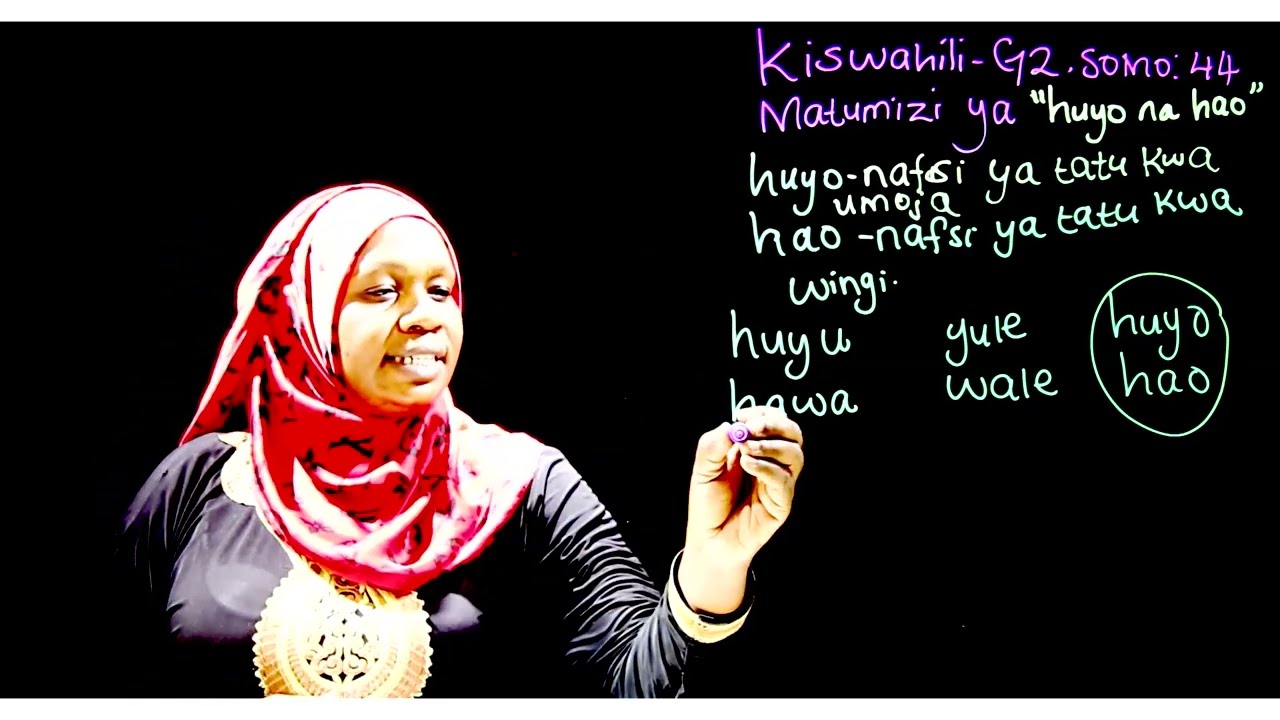 Kiswahili - G2. Somo: 44
Matumizi ya "huyo na hao"
huyo - nafsi ya tatu kwa
umoja
hao - nafsi ya tatu kwa
wingi.
huyu yule huyo
hawa wale hao